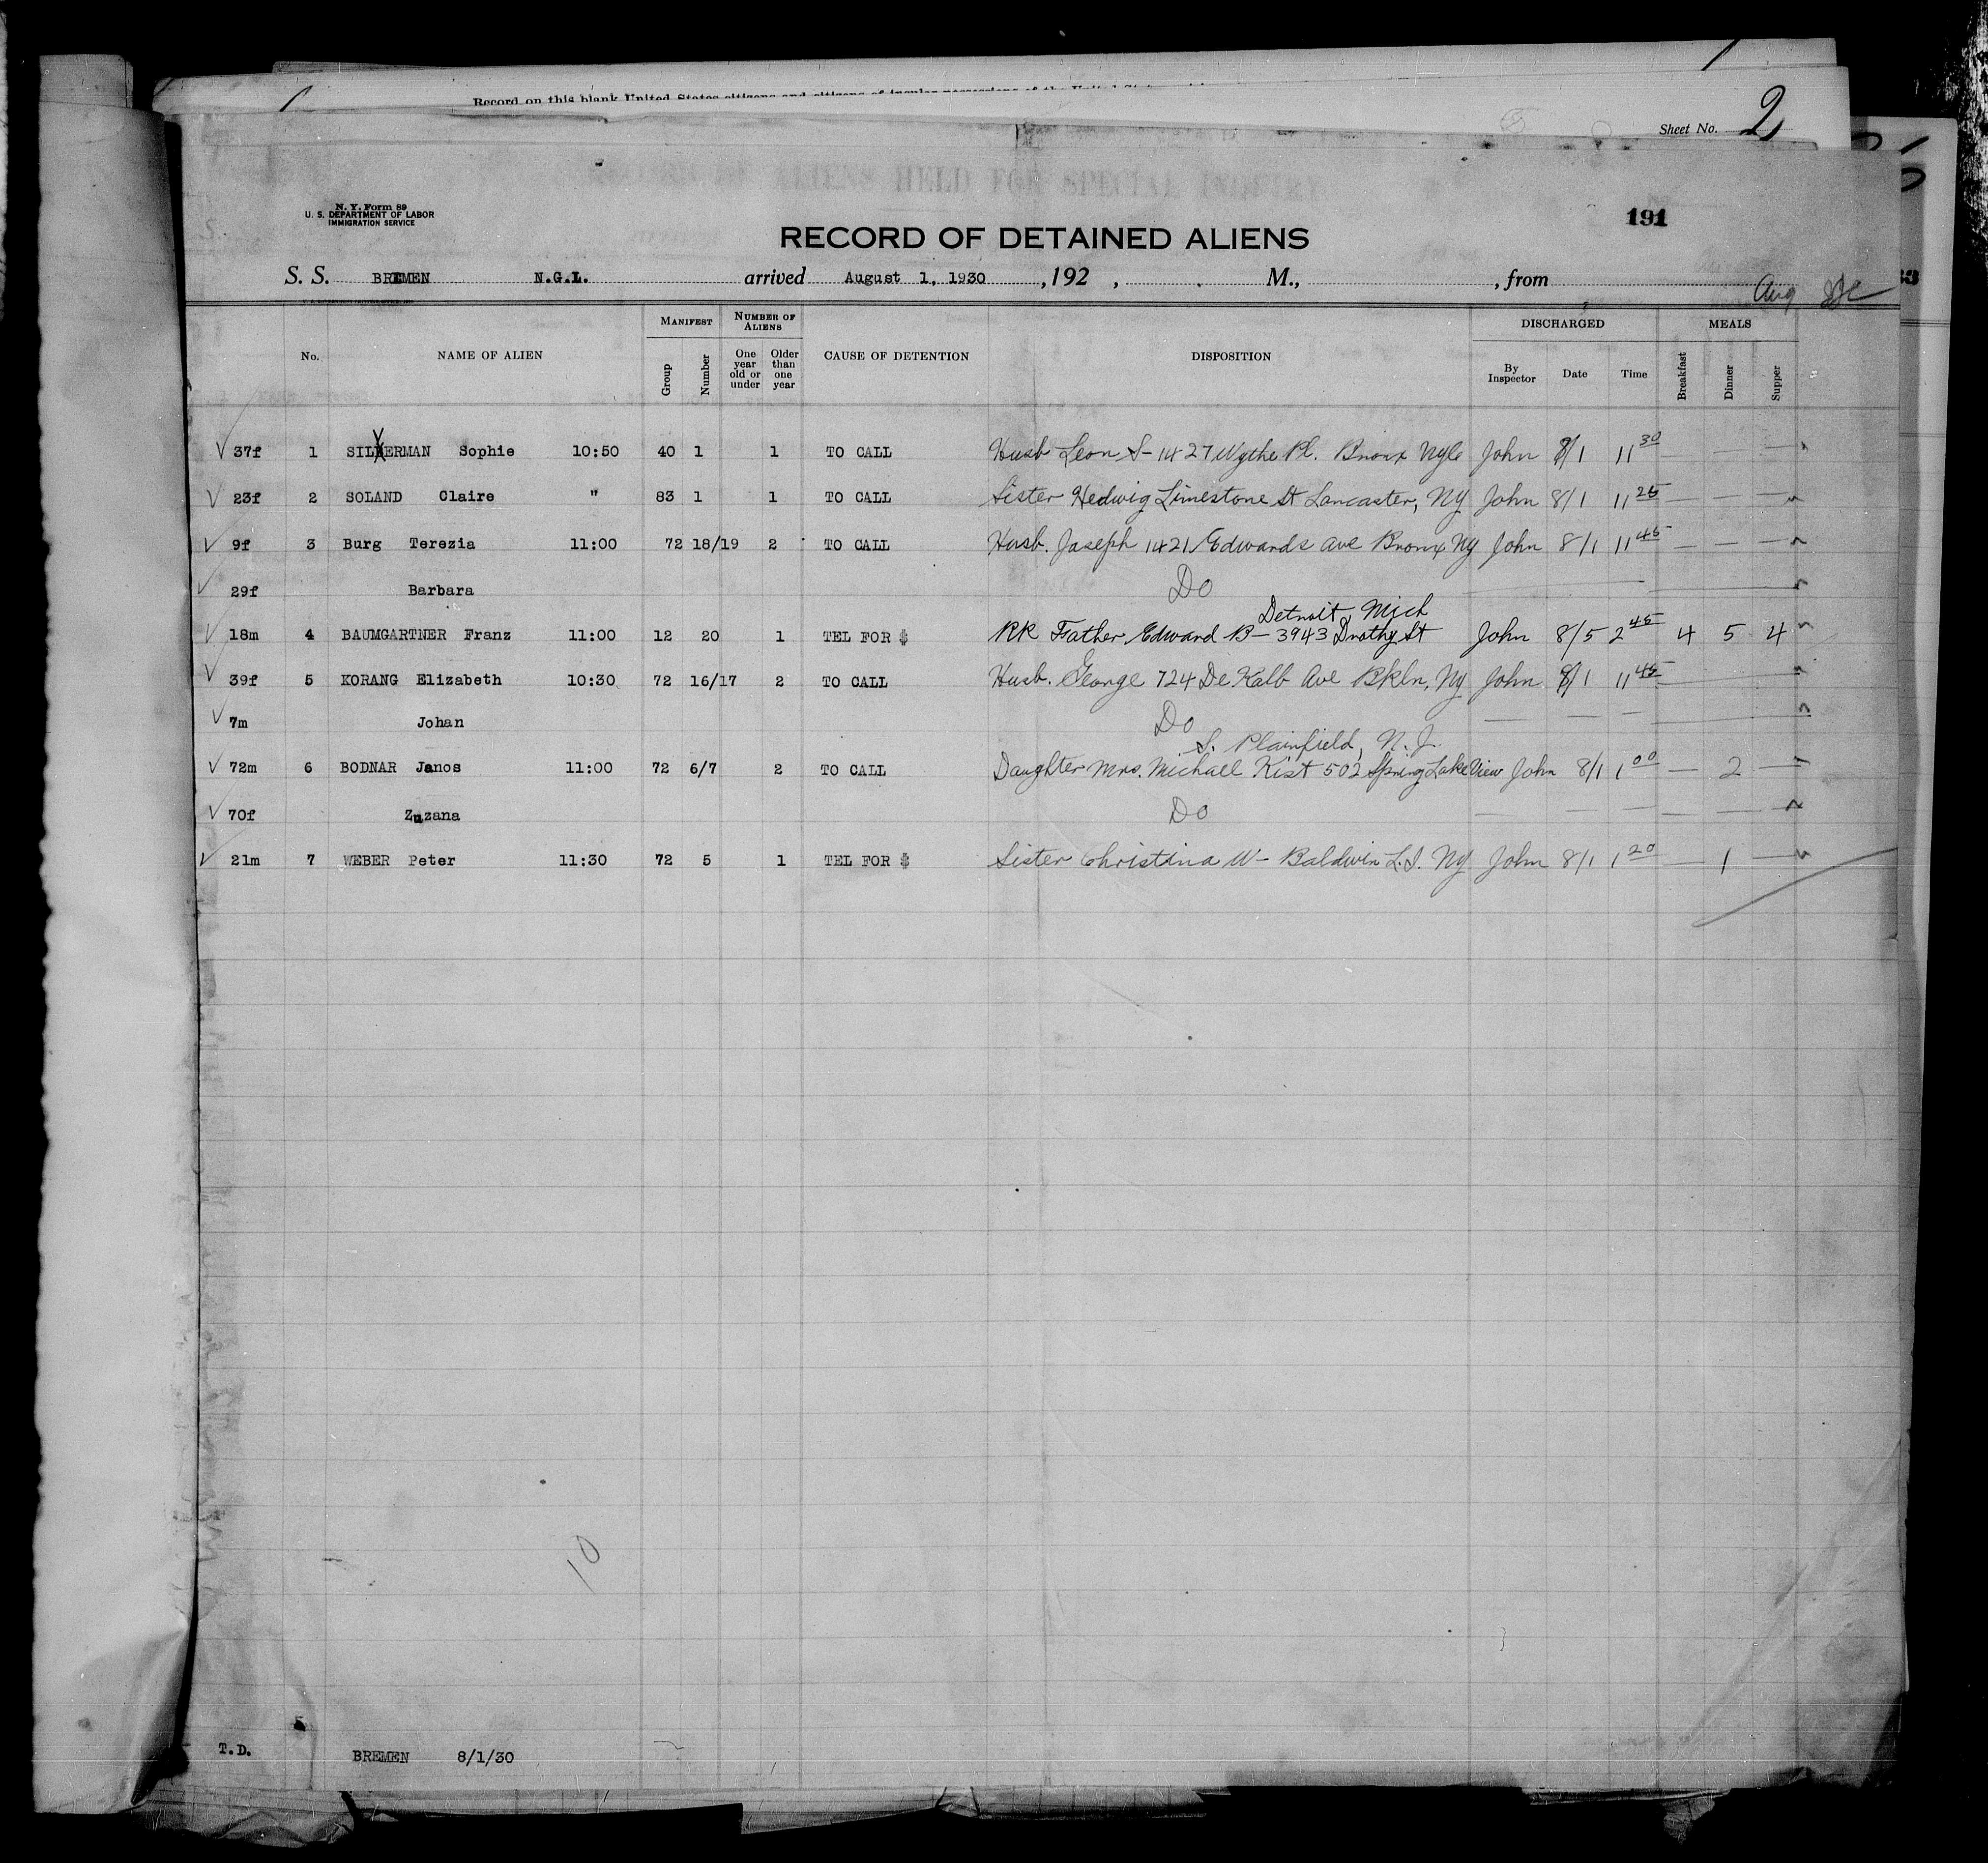 Record on this blank United States citizens and citizens of insular possessions of the United States
Sheet No. 2
RECORD OF ALIENS HELD FOR SPECIAL INQUIRY
N. Y. Form 89
U. S. DEPARTMENT OF LABOR
IMMIGRATION SERVICE
191
RECORD OF DETAINED ALIENS
S. S. BREMEN N.G.L. arrived August 1, 1930, 192 , . M., , from
Aug
MANIFEST NUMBER OF ALIENS DISCHARGED MEALS
No. NAME OF ALIEN Group Number One year old or under Older than one year CAUSE OF DETENTION DISPOSITION By Inspector Date Time Breakfast Dinner Supper
37f 1 SILVERMAN Sophie 10:50 40 1 1 TO CALL Husb Leon S- 1427 Wythe Pl. Bronx NY John 8/1 11 30 — — —
23f 2 SOLAND Claire " 83 1 1 TO CALL Sister Hedwig Limestone St Lancaster, NY John 8/1 11 25 — — —
9f 3 Burg Terezia 11:00 72 18/19 2 TO CALL Husb. Joseph 1421 Edwards Ave Bronx NY John 8/1 11 45 — — —
29f Barbara Do
Detroit, Mich
18m 4 BAUMGARTNER Franz 11:00 12 20 1 TEL FOR $ RR Father Edward B- 3943 St John 8/5 2 45 4 5 4
39f 5 KORANG Elizabeth 10:30 72 16/17 2 TO CALL Husb. George 724 De Kalb Ave Bkln, NY John 8/1 11 45
7m Johan Do
S. Plainfield, N. J.
72m 6 BODNAR Janos 11:00 72 6/7 2 TO CALL Daughter Mrs. Michael Kist 502 Spring Lake View John 8/1 1 00 — 2 —
70f Zuzana Do
21m 7 WEBER Peter 11:30 72 5 1 TEL FOR $ Sister Christina W- Baldwin L.I. NY John 8/1 1 20 — 1 —
10
T.D. BREMEN 8/1/30